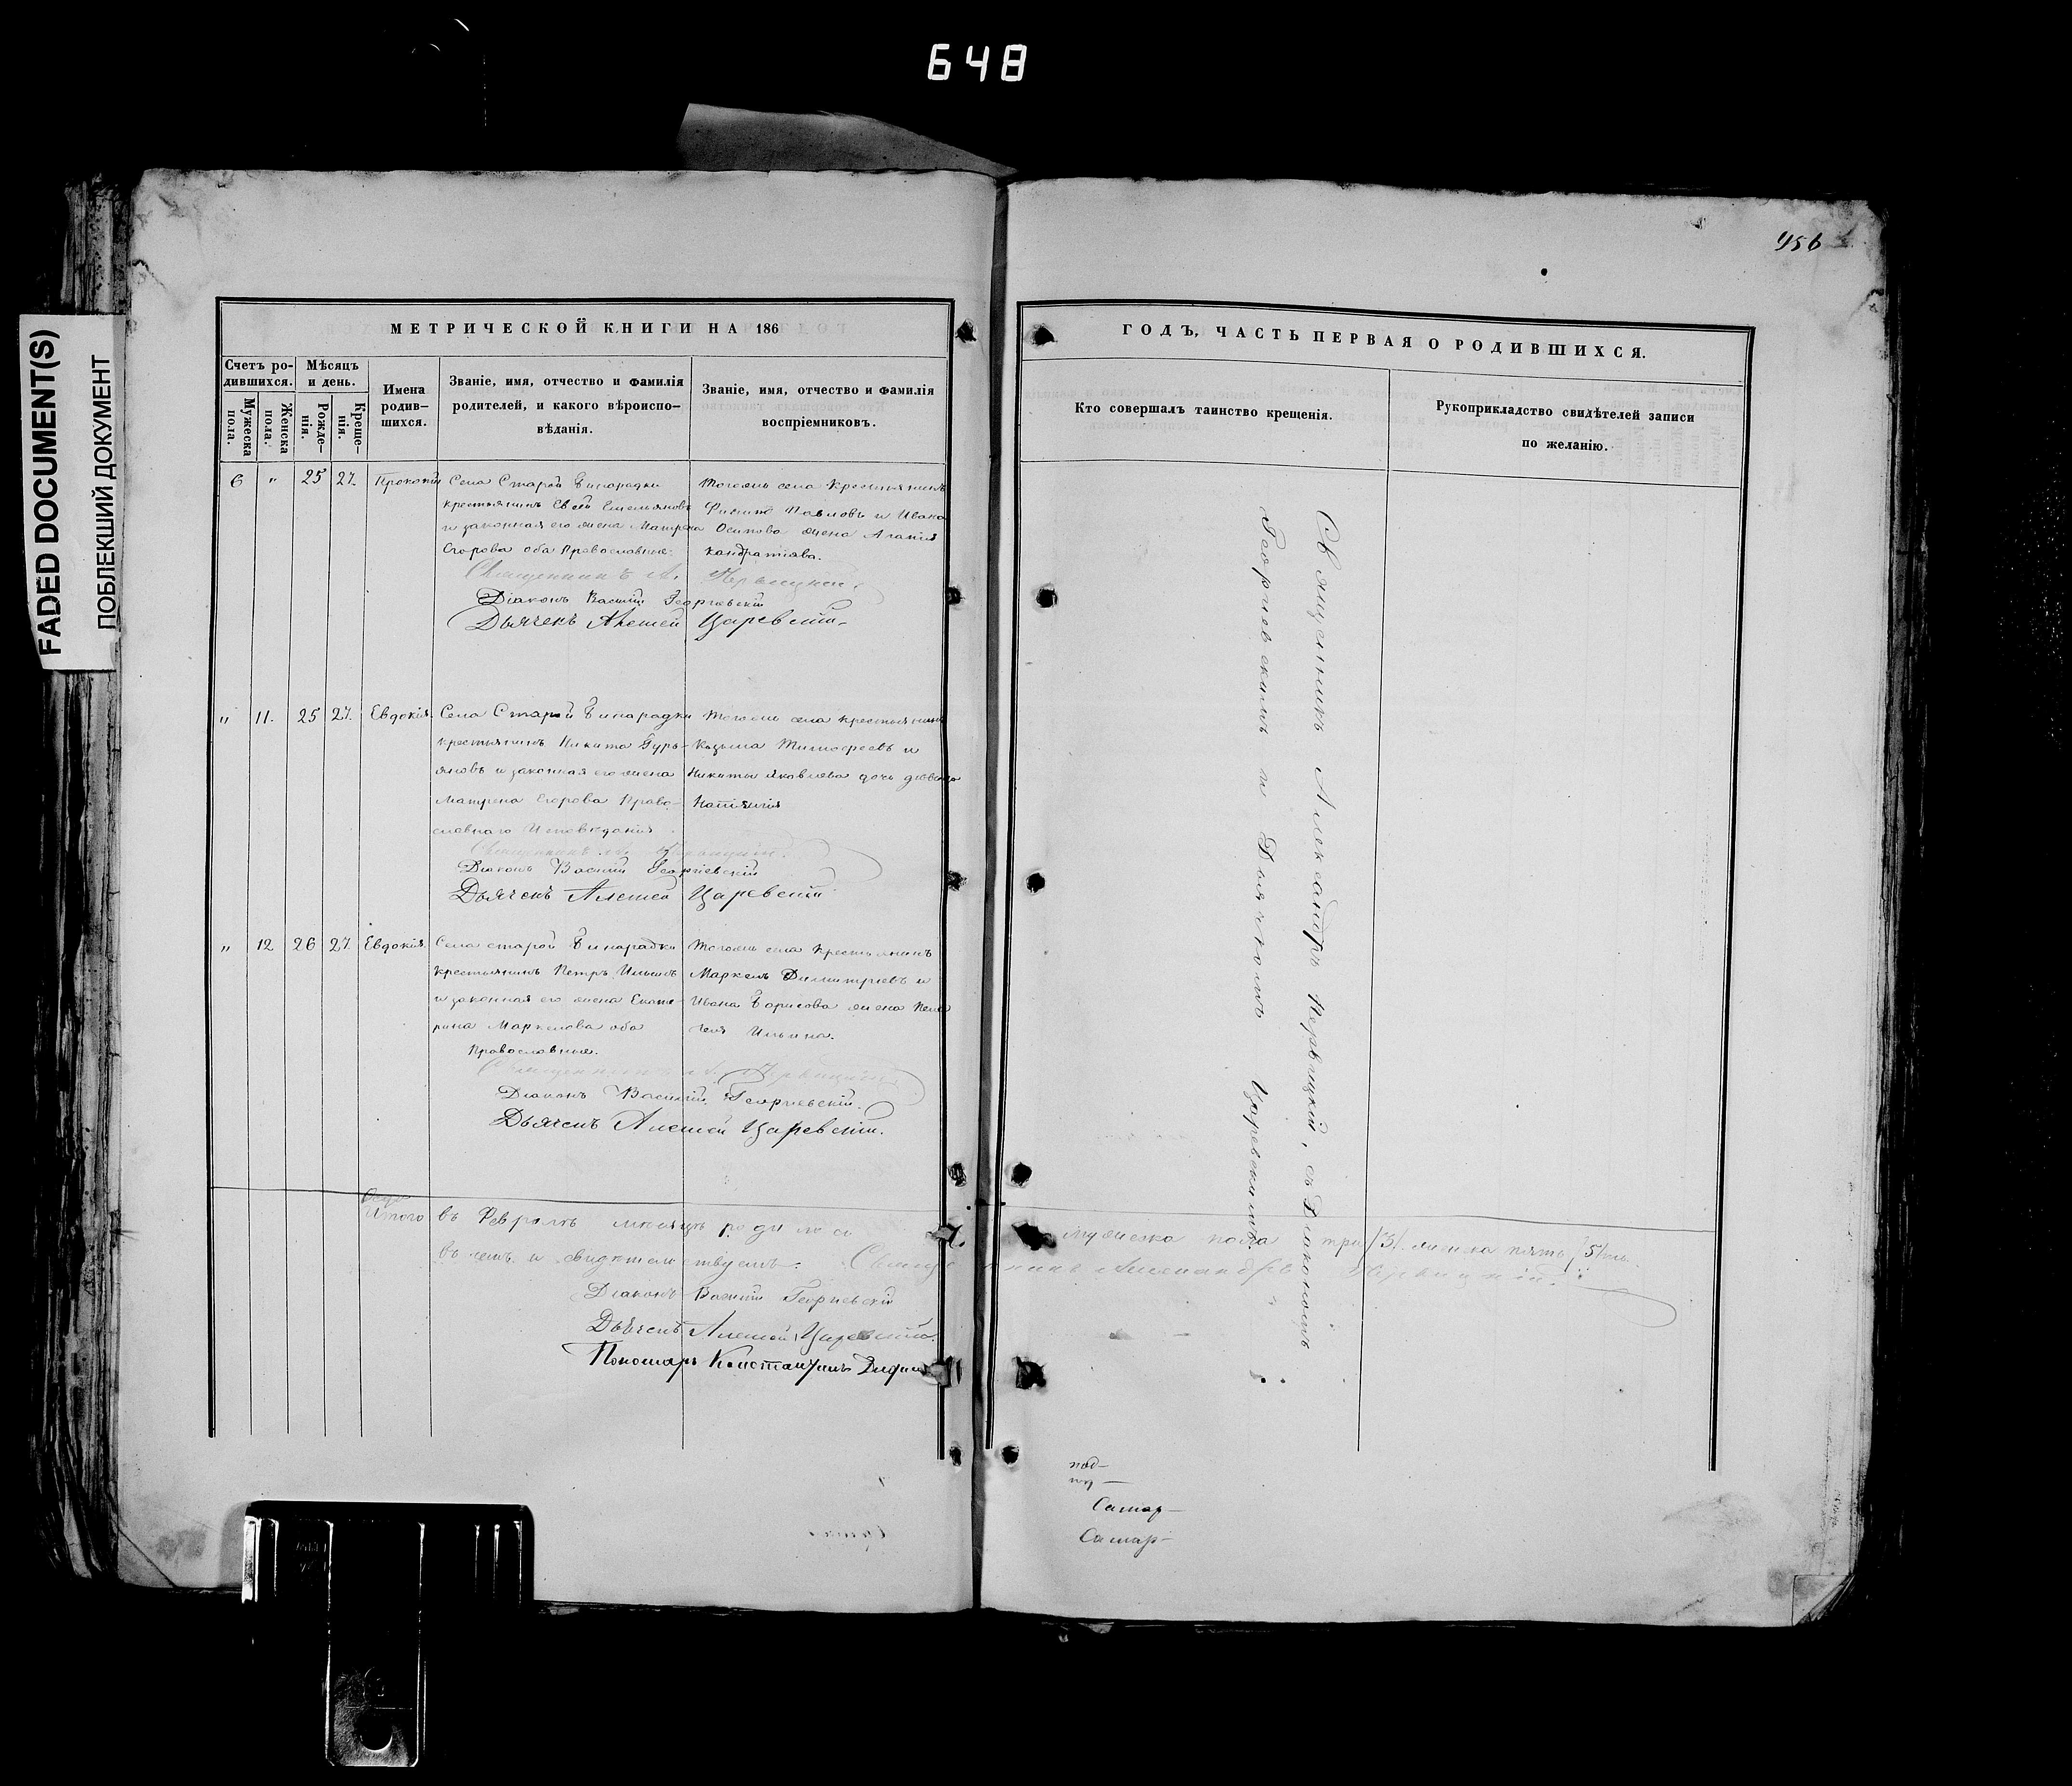 648
FADED DOCUMENT(S)
ПОБЛЕКШИЙ ДОКУМЕНТ
456
МЕТРИЧЕСКОЙ КНИГИ НА 186
Счетъ ро-
дившихся.
Мужеска
пола.
Женска
пола.
Мѣсяцъ
и день.
Рожде-
нія.
Креще-
нія.
Имена
родив-
шихся.
Званіе, имя, отчество и фамилія
родителей, и какого вѣроиспо-
вѣданія.
Званіе, имя, отчество и фамилія
воспріемниковъ.
6 " 25 27. Прокопій
Села Старой Бинарадки
крестьянинъ Евсей Емельяновъ
и законная его жена Матрена
Егорова оба Православные.
Тогожъ села Крестьянинъ
Филипъ Павловъ и Ивана
Осипова жена Агапія
кандратіява.
Священникъ А.
Діаконъ Василій Георгіевскій
Дьячекъ Алексей Царевскій
" 11. 25 27. Евдокія.
Села Старой Бинарадки
крестьянинъ Никита Гурь-
яновъ и законная его жена
Матрена Егорова Право-
славнаго Исповѣданія.
Тогожъ села крестьянинъ
Козьма Тимофеевъ и
Никиты Яковлева дочь девица
Діаконъ Василій Георгіевскій
Дьячекъ Алексей Царевскій
" 12 26 27 Евдокія.
Села старой Бинарадки
крестьянинъ Петръ Ильинъ
и законная его жена Екате-
рина Маркелова оба
Православные.
Тогожъ села Крестьянинъ
Маркелъ Димитріевъ и
Ивана Борисова жена Пела
гея Ильина.
Священникъ А.
Діаконъ Василій Георгіевскій.
Дьячекъ Алексей Царевскій.
Итого въ Февралѣ месяцѣ родилося
въ чемъ и свидѣтельствуемъ. Священникъ Александръ
Діаконъ Василій Георгіевскій
Дьячекъ Алексей Царевскій.
Пономарь Константинъ
ГОДЪ, ЧАСТЬ ПЕРВАЯ О РОДИВШИХСЯ.
Кто совершалъ таинство крещенія.
Рукоприкладство свидѣтелей записи
по желанію.
Священникъ Александръ, съ Діакономъ
Георгіевскимъ и Дьячкомъ Царевскимъ.
мужеска пола три /3/. женска пять /5/
под-
Самар-
Самар-